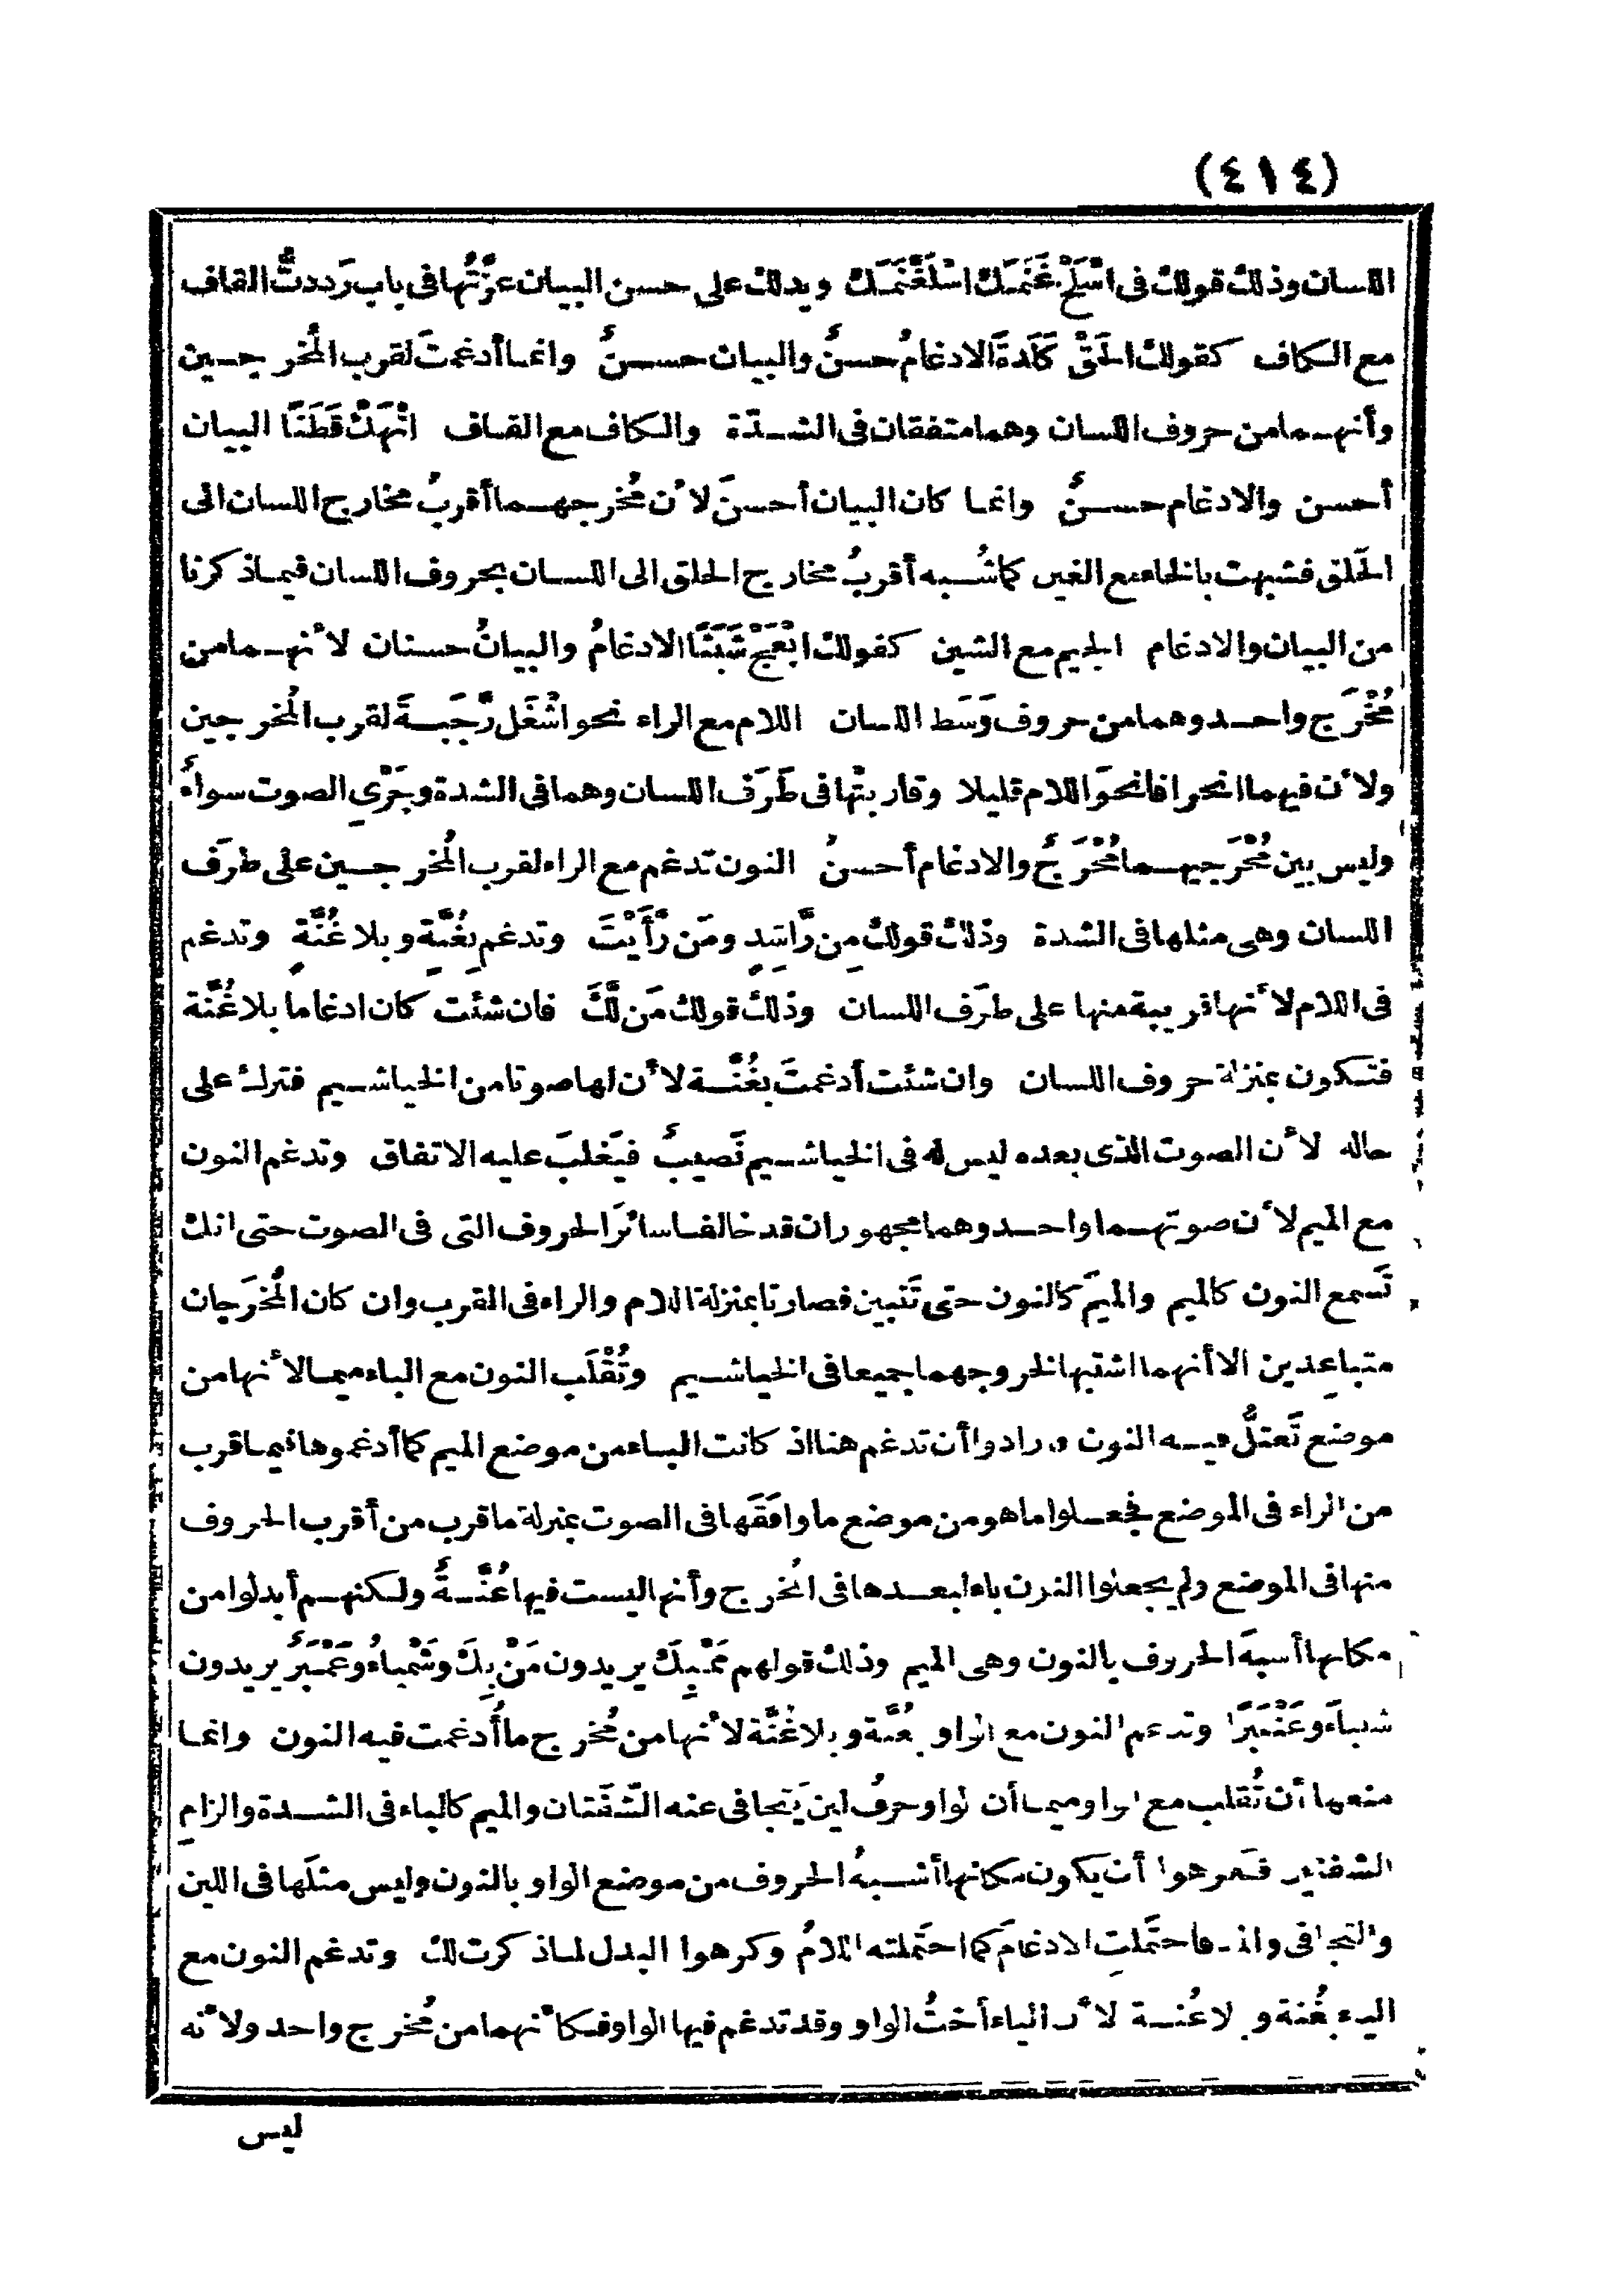 (٤١٤)
اللسان وذلك قولك فى اسْلَخْ غَنَمَك اسْلَغَّنَمَك ويدلك على حسن البيان عزّتُها فى باب رَددتُّ القاف
مع الكاف كقولك الحَقْ كَلَدةَ الادغامُ حسنٌ والبيان حسنٌ وانما أدغمتَ لقرب المُخرجين
وأنهما من حروف اللسان وهما متفقان فى الشدّة والكاف مع القاف انْهَكْ قَطَنًا البيان
أحسن والادغام حسنٌ وانما كان البيان أحسنَ لأن مُخرجهما أقربُ مخارج اللسان الى
الحَلق فشبهت بالخاء مع الغين كما شُبه أقربُ مخارج الحلق الى اللسان بحروف اللسان فيما ذكرنا
من البيان والادغام الجيم مع الشين كقولك ابْعَجْ شَبَثًا الادغامُ والبيانُ حسنان لأنهما من
مُخْرَج واحد وهما من حروف وَسَط اللسان اللام مع الراء نحو اشْغَل رَّجَبةَ لقرب المُخرجين
ولأن فيهما انحرافا نحوَ اللام قليلا وقاربتْها فى طَرَف اللسان وهما فى الشدة وجَرْىِ الصوت سواءٌ
وليس بين مُخْرَجيهما مُخْرَجٌ والادغام أحسنُ النون تدغم مع الراء لقرب المُخرجين على طرَف
اللسان وهى مثلها فى الشدة وذلك قولك مِن رَّاشِدٍ ومَن رَّأَيْتَ وتدغم بِغُنَّةٍ وبلا غُنَّةٍ وتدغم
فى اللام لأنها قريبة منها على طرَف اللسان وذلك قولك مَن لَّكَ فان شئت كان ادغاما بلا غُنَّة
فتكون بمنزلة حروف اللسان وان شئت أدغمتَ بغُنَّة لأن لها صوتا من الخياشيم فترك على
حاله لأن الصوت الذى بعده ليس له فى الخياشيم نَصيبٌ فيَغلبَ عليه الاتفاق وتدغم النون
مع الميم لأن صوتهما واحد وهما مجهوران قد خالفا سائرَ الحروف التى فى الصوت حتى انك
تَسمع النون كالميم والميمَ كالنون حتى تَتبين فصارتا بمنزلة اللام والراء فى القرب وان كان المُخرَجان
متباعِدين الا أنهما اشتبها لخروجهما جميعا فى الخياشيم وتُقْلَب النون مع الباء ميما لأنها من
موضع تَعتلُّ فيه النون وأرادوا أن تدغم هنا اذ كانت الباء من موضع الميم كما أدغموها فيما قرب
من الراء فى الموضع فجعلوا ما هو من موضع ما وافَقَها فى الصوت بمنزلة ما قرب من أقرب الحروف
منها فى الموضع ولم يجعلوا النون باء لبعدها فى المُخرج وأنها ليست فيها غُنَّةٌ ولكنهم أبدلوا من
مكانها أشبهَ الحروف بالنون وهى الميم وذلك قولهم مَمْبِكَ يريدون مَنْ بِكَ وشَمْباءُ وعَمْبَرٌ يريدون
شنباءَ وعَنْبَرًا وتدغم النون مع الواو بغُنَّة وبلا غُنَّة لأنها من مُخرج ما أُدغمت فيه النون وانما
منعها أن تُقلب مع الواو ميما أن الواو حرفُ لين يَتجافى عنه الشَّفَتان والميم كالباء فى الشدة والزامِ
الشفتين فكرهوا أن يكون مكانها أشبهُ الحروف من موضع الواو بالنون وليس مثلَها فى اللين
والتجافى والمد فاحتَملتِ الادغامَ كما احتَملته اللامُ وكرهوا البدل لما ذكرت لك وتدغم النون مع
الياء بغُنة وبلا غُنة لأن الياء أختُ الواو وقد تدغم فيها الواو فكأنهما من مُخرج واحد ولأنه
ليس